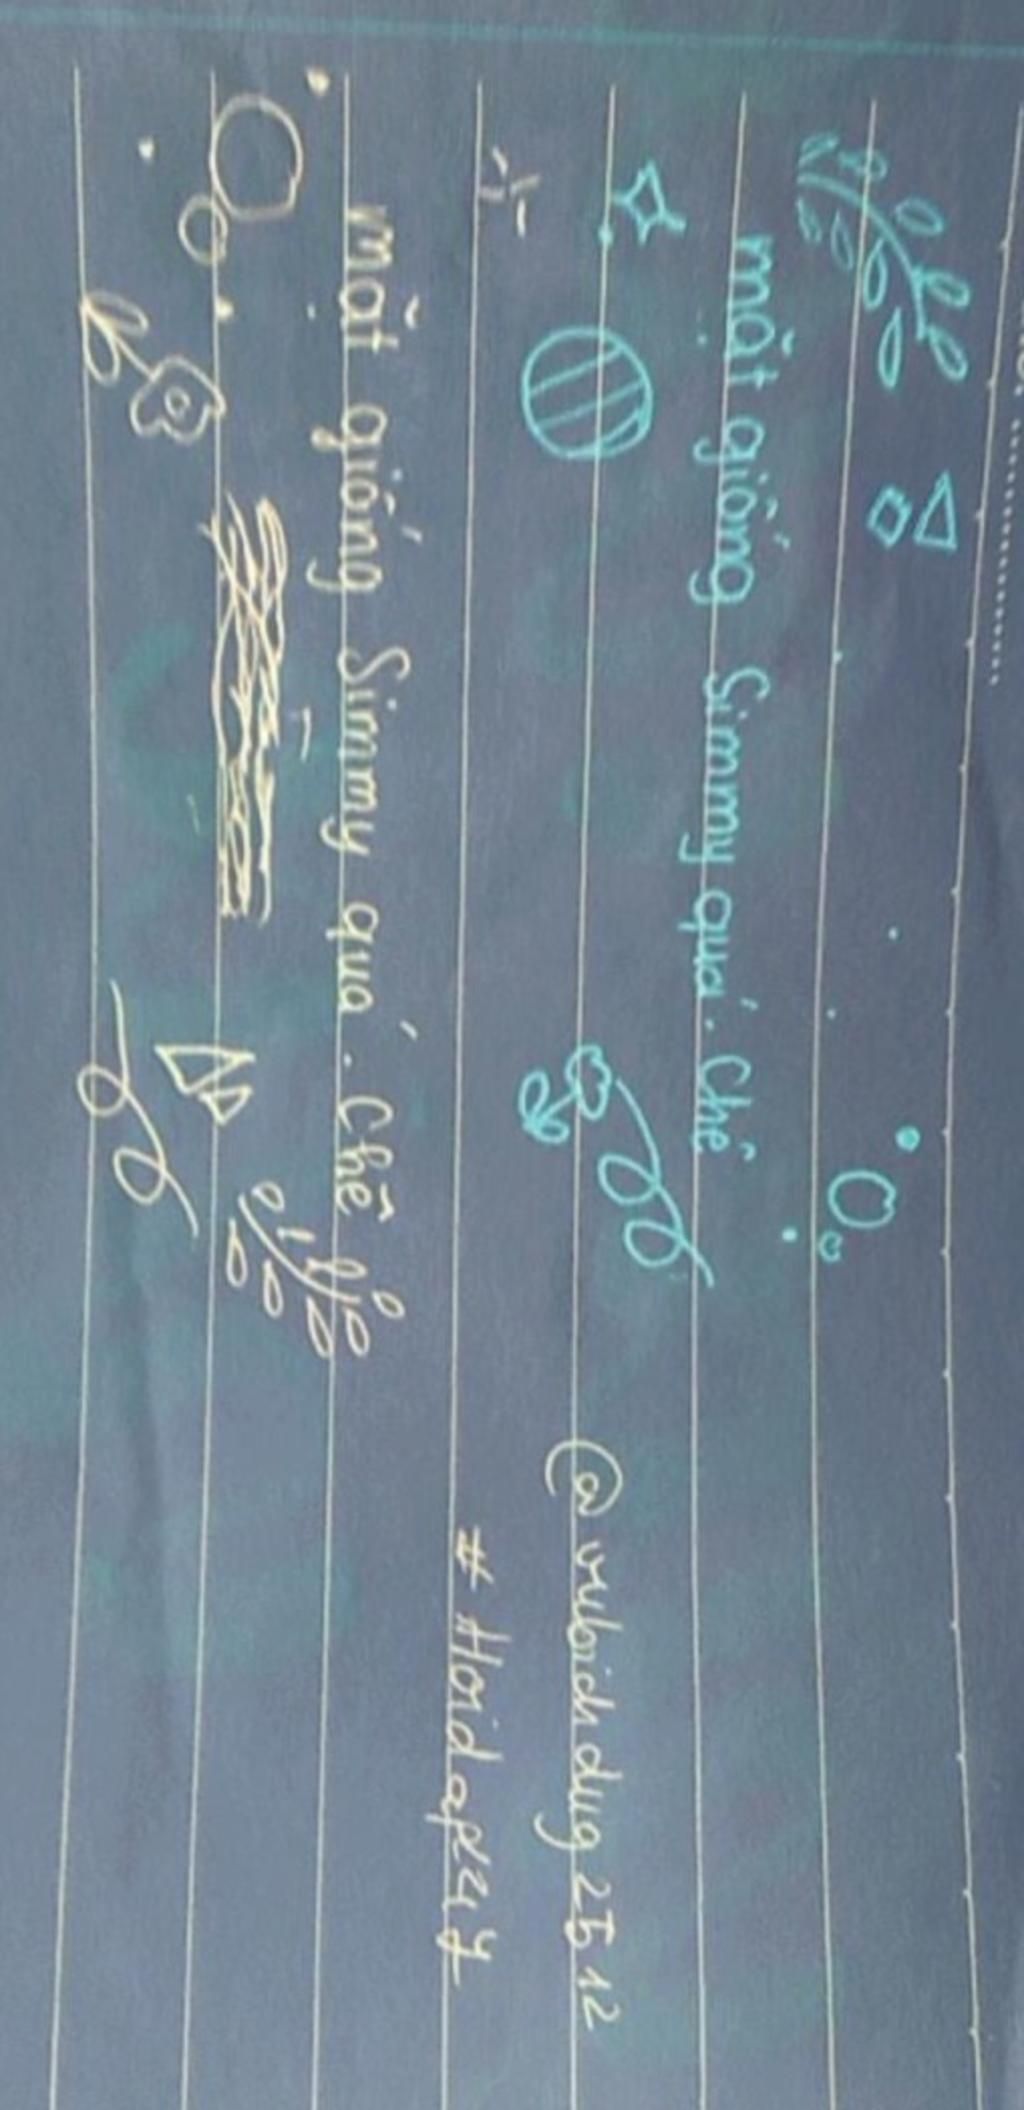 mặt giống Simmy quá. Chê
@vubichdug2512
# Hoidap247
mặt giống Simmy quá. Chê